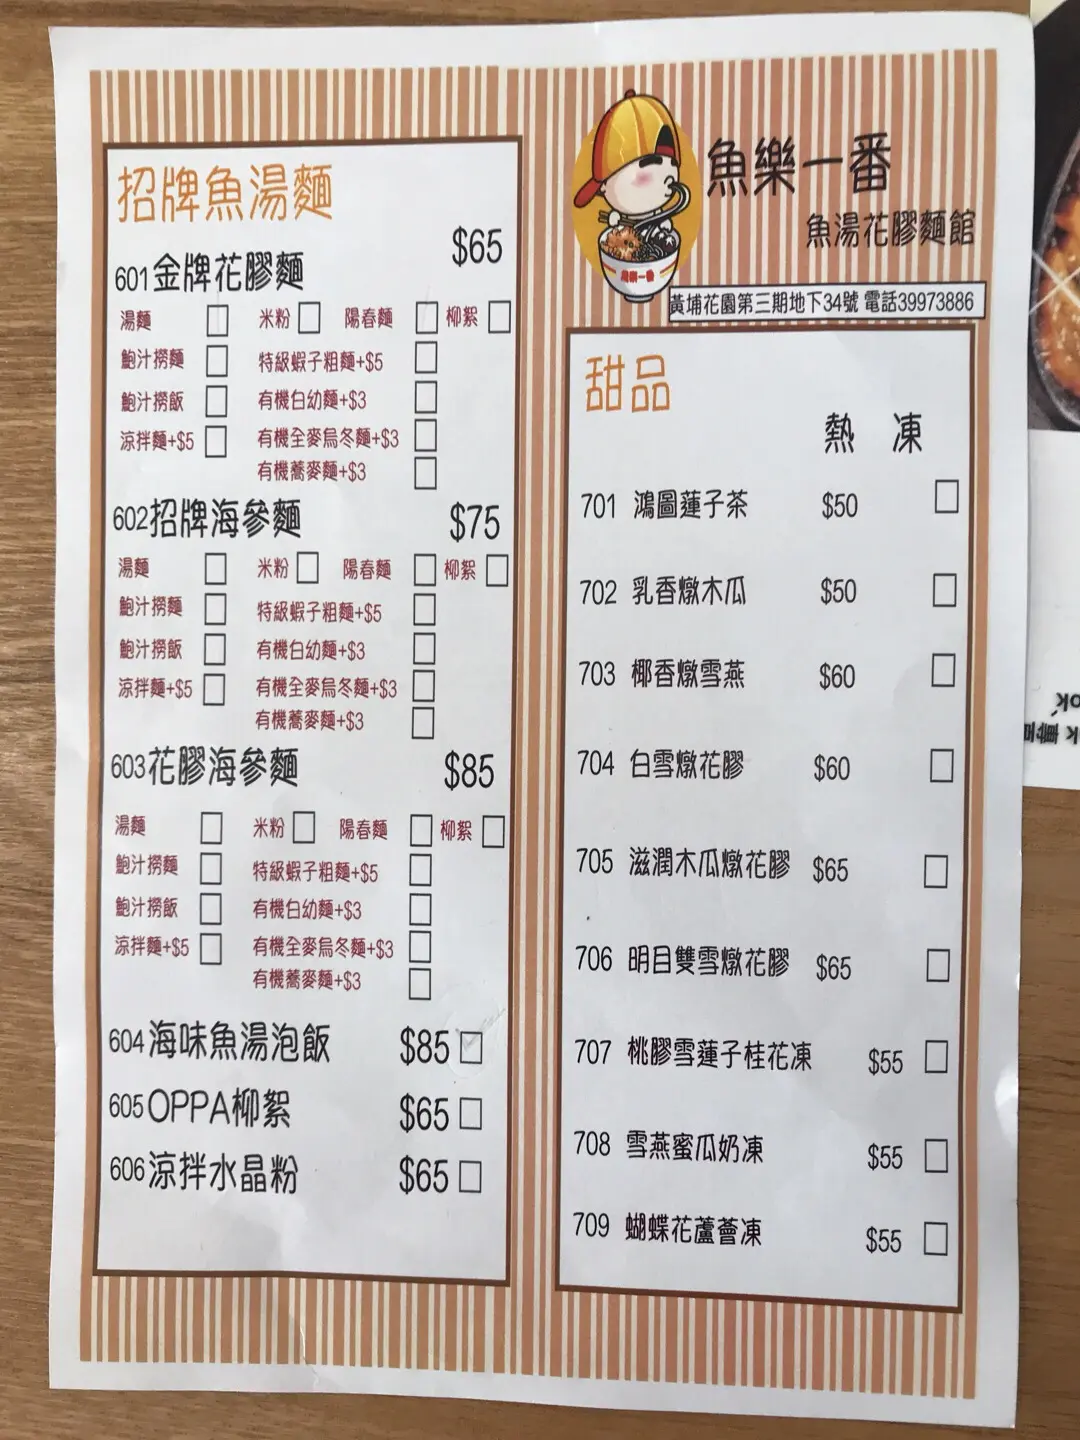 招牌魚湯麵
601金牌花膠麵 $65
湯麵 米粉 陽春麵 柳絮
鮑汁撈麵 特級蝦子粗麵+$5
鮑汁撈飯 有機白幼麵+$3
涼拌麵+$5 有機全麥烏冬麵+$3
有機蕎麥麵+$3
602招牌海參麵 $75
湯麵 米粉 陽春麵 柳絮
鮑汁撈麵 特級蝦子粗麵+$5
鮑汁撈飯 有機白幼麵+$3
涼拌麵+$5 有機全麥烏冬麵+$3
有機蕎麥麵+$3
603花膠海參麵 $85
湯麵 米粉 陽春麵 柳絮
鮑汁撈麵 特級蝦子粗麵+$5
鮑汁撈飯 有機白幼麵+$3
涼拌麵+$5 有機全麥烏冬麵+$3
有機蕎麥麵+$3
604海味魚湯泡飯 $85
605OPPA柳絮 $65
606涼拌水晶粉 $65
魚樂一番
魚湯花膠麵館
魚樂一番
黃埔花園第三期地下34號 電話39973886
甜品
熱 凍
701 鴻圖蓮子茶 $50
702 乳香燉木瓜 $50
703 椰香燉雪燕 $60
704 白雪燉花膠 $60
705 滋潤木瓜燉花膠 $65
706 明目雙雪燉花膠 $65
707 桃膠雪蓮子桂花凍 $55
708 雪燕蜜瓜奶凍 $55
709 蝴蝶花蘆薈凍 $55